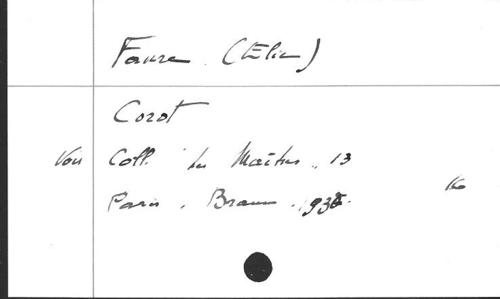 Faure (Elie)
Corot
Voir Coll. des Maîtres, 13
Paris, Braun, 193
16